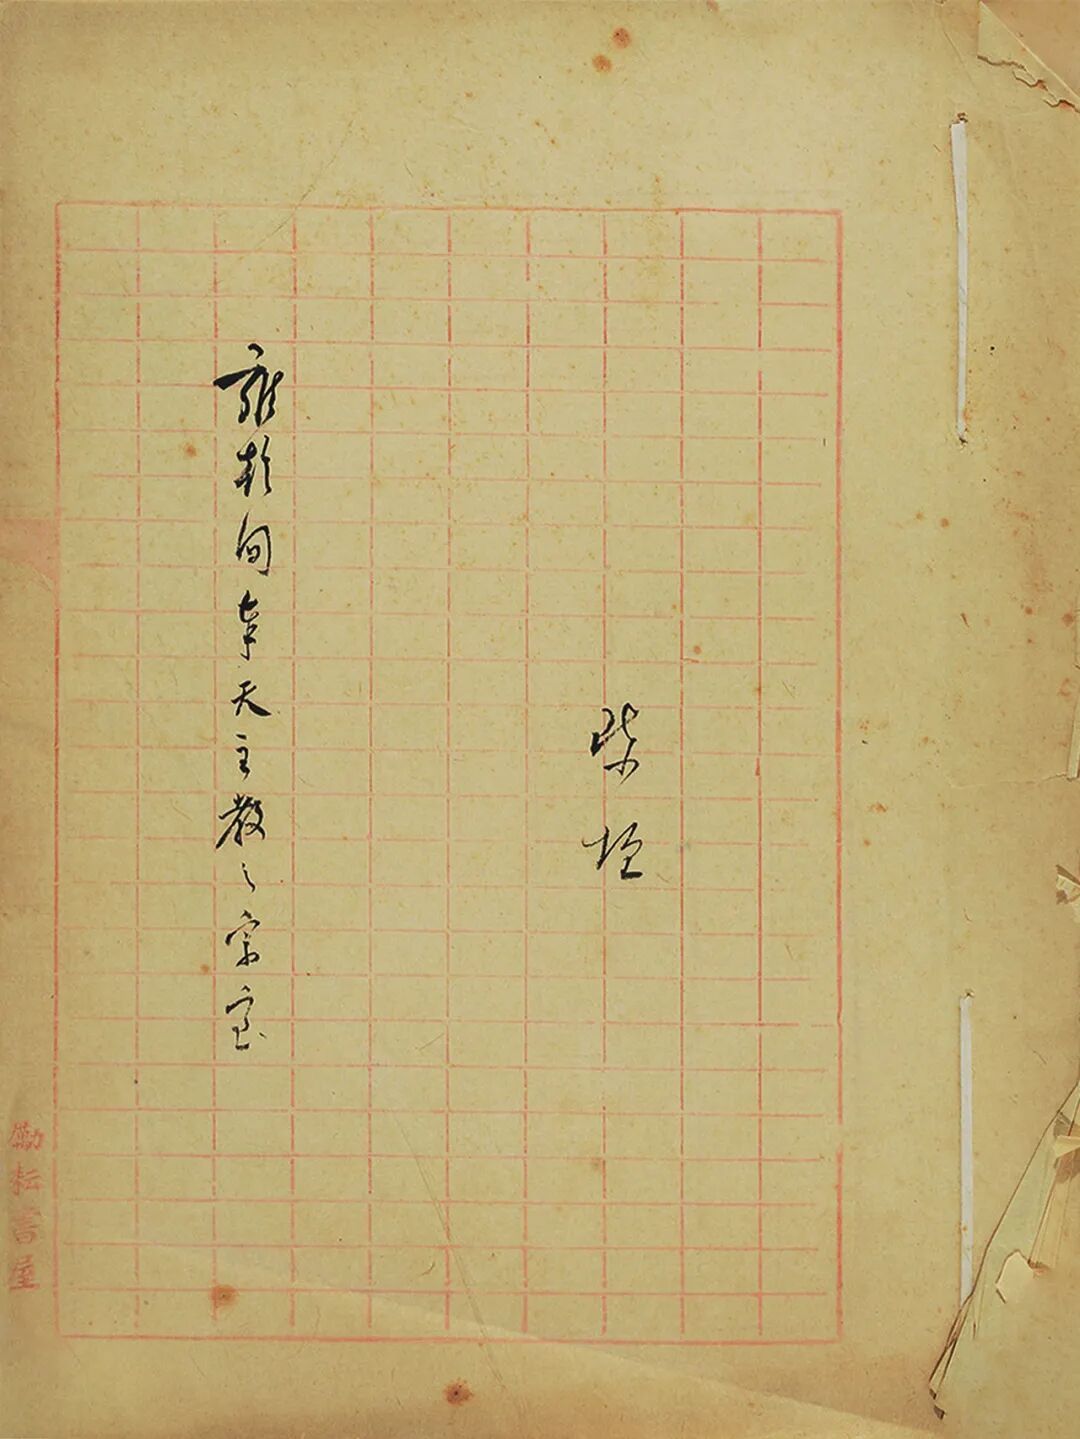 陳垣
雍乾間奉天主教之宗室
勵耘書屋